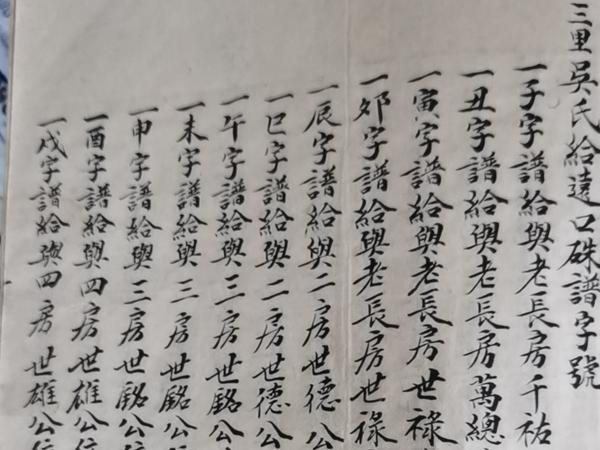 三里吳氏給遠口硃譜字號
一子字譜給與老長房千祐
一丑字譜給與老長房萬總
一寅字譜給與老長房世祿
一夘字譜給與老長房世祿
一辰字譜給與二房世德公
一巳字譜給與二房世德公
一午字譜給與三房世銘公
一未字譜給與三房世銘公
一申字譜給與三房世銘公
一酉字譜給與四房世雄公
一戌字譜給與四房世雄公